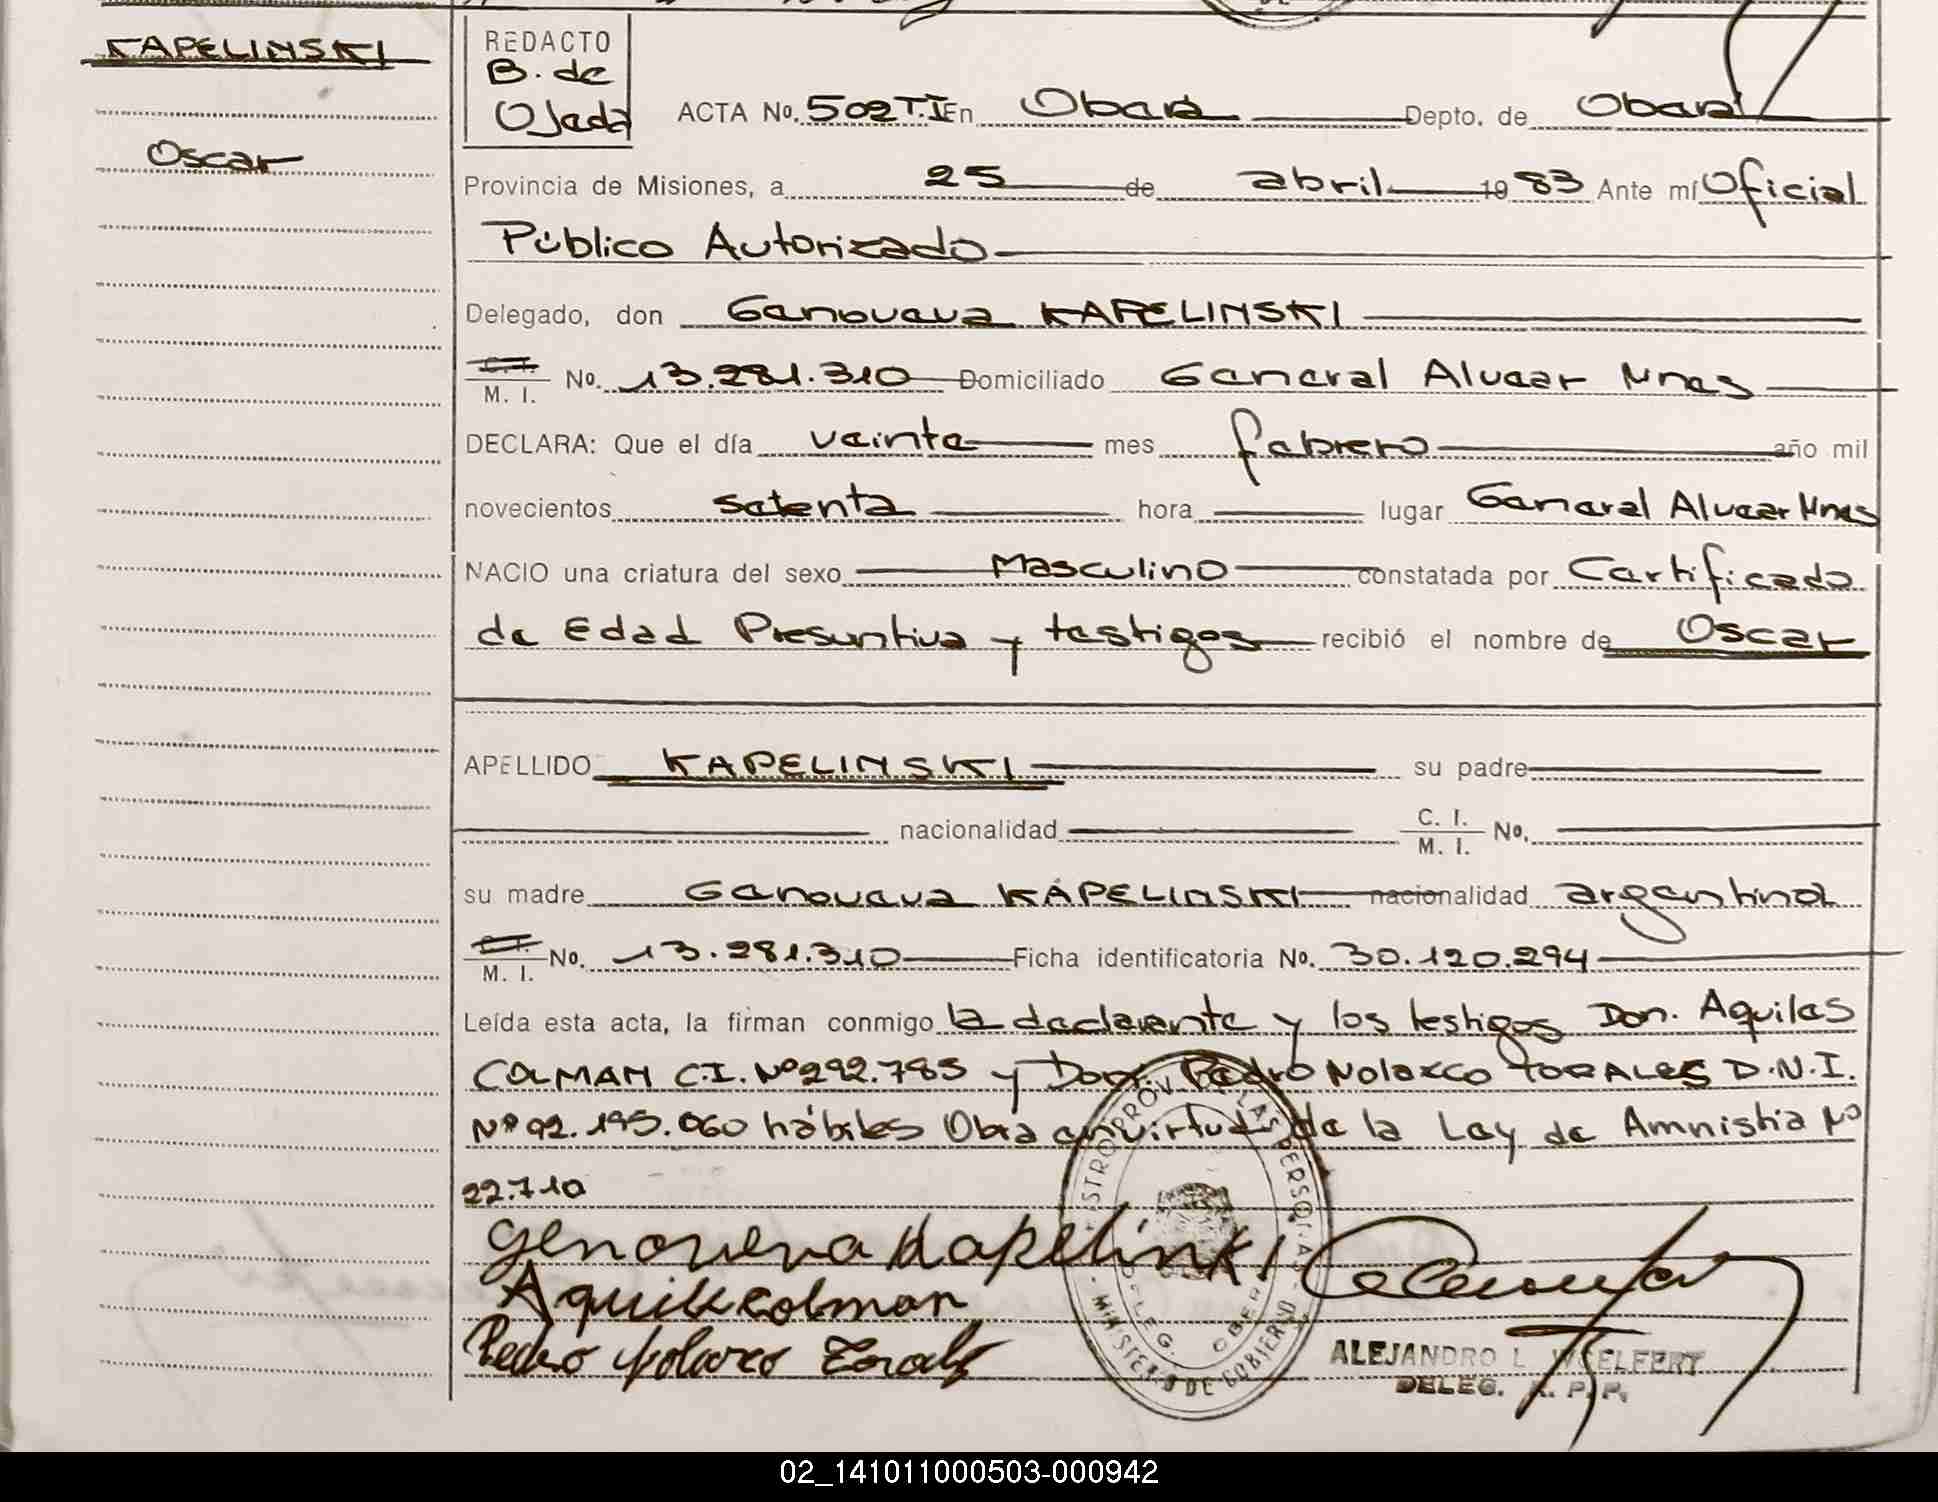 KAPELINSKI
Oscar
REDACTO
B. de
Ojeda
ACTA No. 502 T.I En Oberá Depto. de Oberá
Provincia de Misiones, a 25 de abril 19 83 Ante mí Oficial
Público Autorizado
Delegado, don Genoveva KAPELINSKI
C. I.
M. I. No. 13.281.310 Domiciliado General Alvear Mnes
DECLARA: Que el día veinte mes febrero año mil
novecientos setenta hora lugar General Alvear Mnes
NACIO una criatura del sexo Masculino constatada por Certificado
de Edad Presuntiva y testigos recibió el nombre de Oscar
APELLIDO KAPELINSKI su padre
nacionalidad C. I.
M. I. No.
su madre Genoveva KAPELINSKI nacionalidad argentina
C. I.
M. I. No. 13.281.310 Ficha identificatoria No. 30.120.294
Leída esta acta, la firman conmigo la declarante y los testigos Don. Aquiles
COLMAN C.I. Nº 292.785 y Don. Pedro Nolazco TORALES D.N.I.
Nº 92.195.060 hábiles Obra en virtud de la Ley de Amnistia Nº
22.710
Genoveva Kapelinski
Aquiles colman
Pedro Nolazco Torales
MINISTERIO DE GOBIERNO
DELEG. OBERÁ
ALEJANDRO L.
DELEG. R. P. P.
02_141011000503-000942